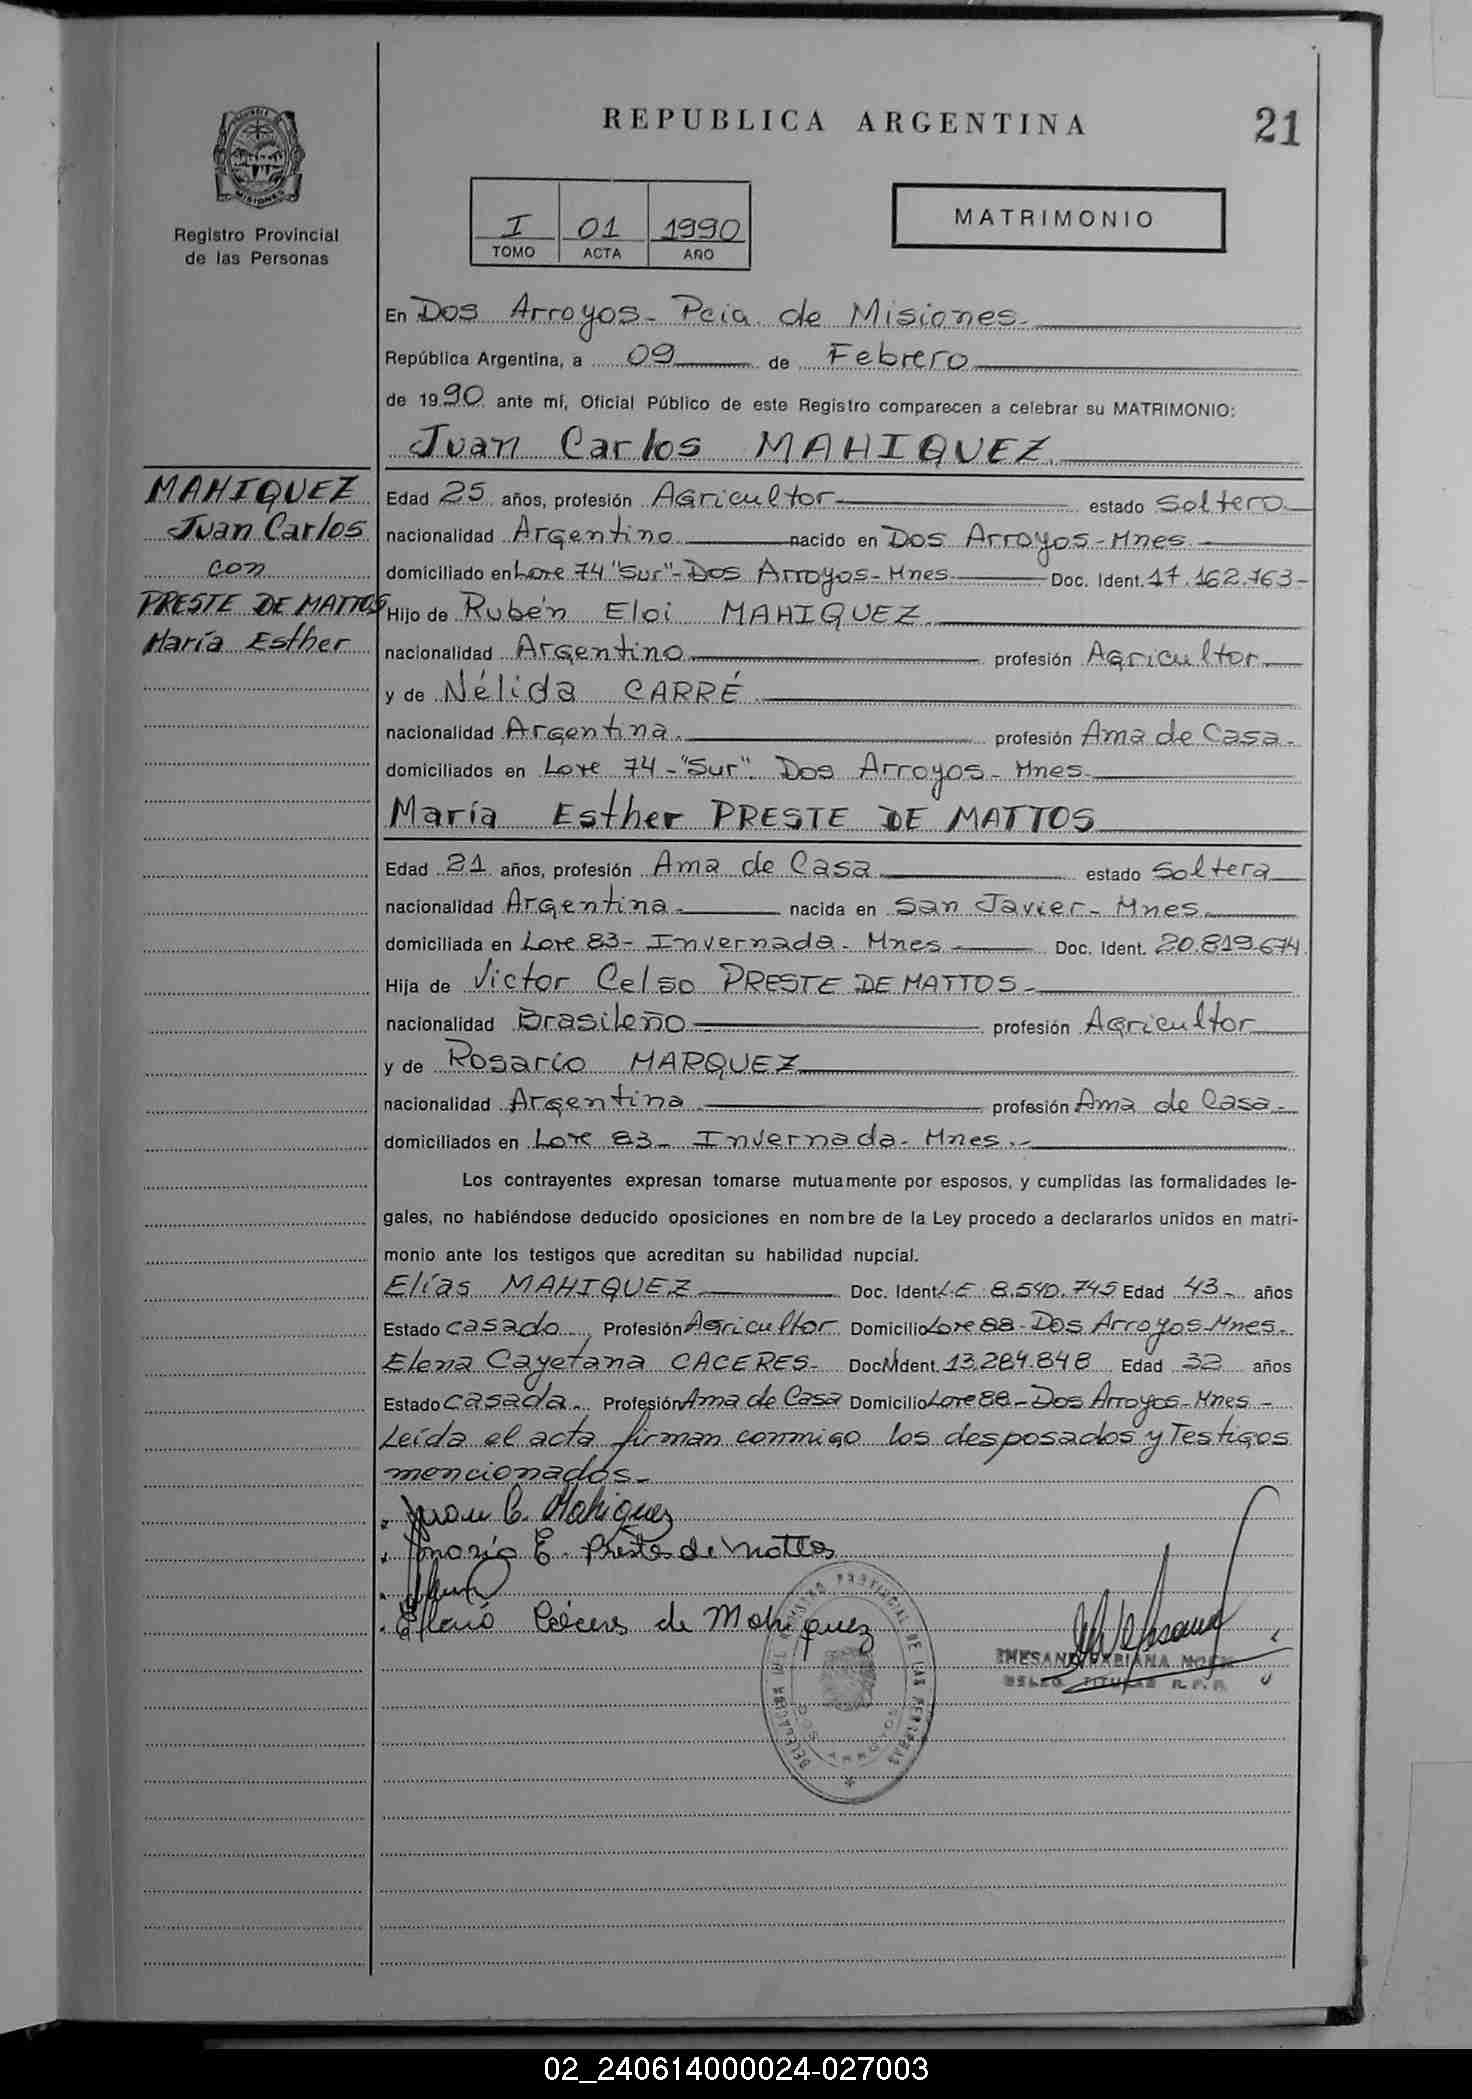 REPUBLICA ARGENTINA
21
PROVINCIA DE
MISIONES
Registro Provincial
de las Personas
I 01 1990
TOMO ACTA AÑO
MATRIMONIO
En Dos Arroyos - Pcia. de Misiones.
República Argentina, a 09 de Febrero
de 1990 ante mí, Oficial Público de este Registro comparecen a celebrar su MATRIMONIO:
Juan Carlos MAHIQUEZ.
MAHIQUEZ
Juan Carlos
con
PRESTE DE MATTOS
María Esther
Edad 25 años, profesión Agricultor estado Soltero
nacionalidad Argentino nacido en Dos Arroyos - Mnes.
domiciliado en Lote 74 "Sur" - Dos Arroyos - Mnes. Doc. Ident. 17.162.763-
Hijo de Rubén Eloi MAHIQUEZ.
nacionalidad Argentino profesión Agricultor
y de Nélida CARRÉ
nacionalidad Argentina. profesión Ama de Casa.
domiciliados en Lote 74 - "Sur". Dos Arroyos - Mnes.
María Esther PRESTE DE MATTOS
Edad 21 años, profesión Ama de Casa estado Soltera
nacionalidad Argentina. nacida en San Javier - Mnes.
domiciliada en Lote 83 - Invernada - Mnes. Doc. Ident. 20.819.674
Hija de Victor Celso PRESTE DE MATTOS -
nacionalidad Brasileño profesión Agricultor
y de Rosario MARQUEZ
nacionalidad Argentina. profesión Ama de Casa -
domiciliados en Lote 83 - Invernada - Mnes. -
Los contrayentes expresan tomarse mutuamente por esposos, y cumplidas las formalidades le-
gales, no habiéndose deducido oposiciones en nombre de la Ley procedo a declararlos unidos en matri-
monio ante los testigos que acreditan su habilidad nupcial.
Elías MAHIQUEZ Doc. Ident. L.E 8.540.745 Edad 43 - años
Estado casado Profesión Agricultor Domicilio Lote 88 - Dos Arroyos - Mnes.
Elena Cayetana CACERES - Doc. Ident. 13.284.848 Edad 32 años
Estado casada. Profesión Ama de Casa Domicilio Lote 88 - Dos Arroyos - Mnes -
Leída el acta firman conmigo los desposados y Testigos
mencionados. -
Juan C. Mahiquez
María E. Preste de Mattos
Elena Cáceres de Mahiquez
DELEGACION DEL REGISTRO PROVINCIAL DE LAS PERSONAS
DOS ARROYOS
FABIANA
DELEG. TITULAR R.P.P.
02_240614000024-027003